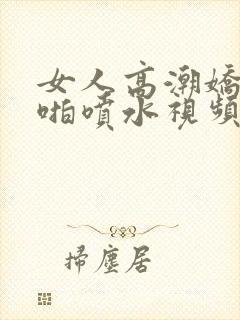 女人高潮嬌
啪噴水視頻
掃塵居